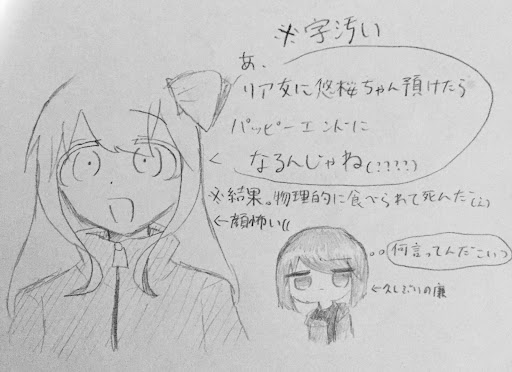 ※字汚い
あ、
リア友に悠桜ちゃん預けたら
パッピーエンドに
なるんじゃね(????)
※結果。物理的に食べられて死んだ
←顔怖い((
何言ってんだこいつ
←久しぶりの